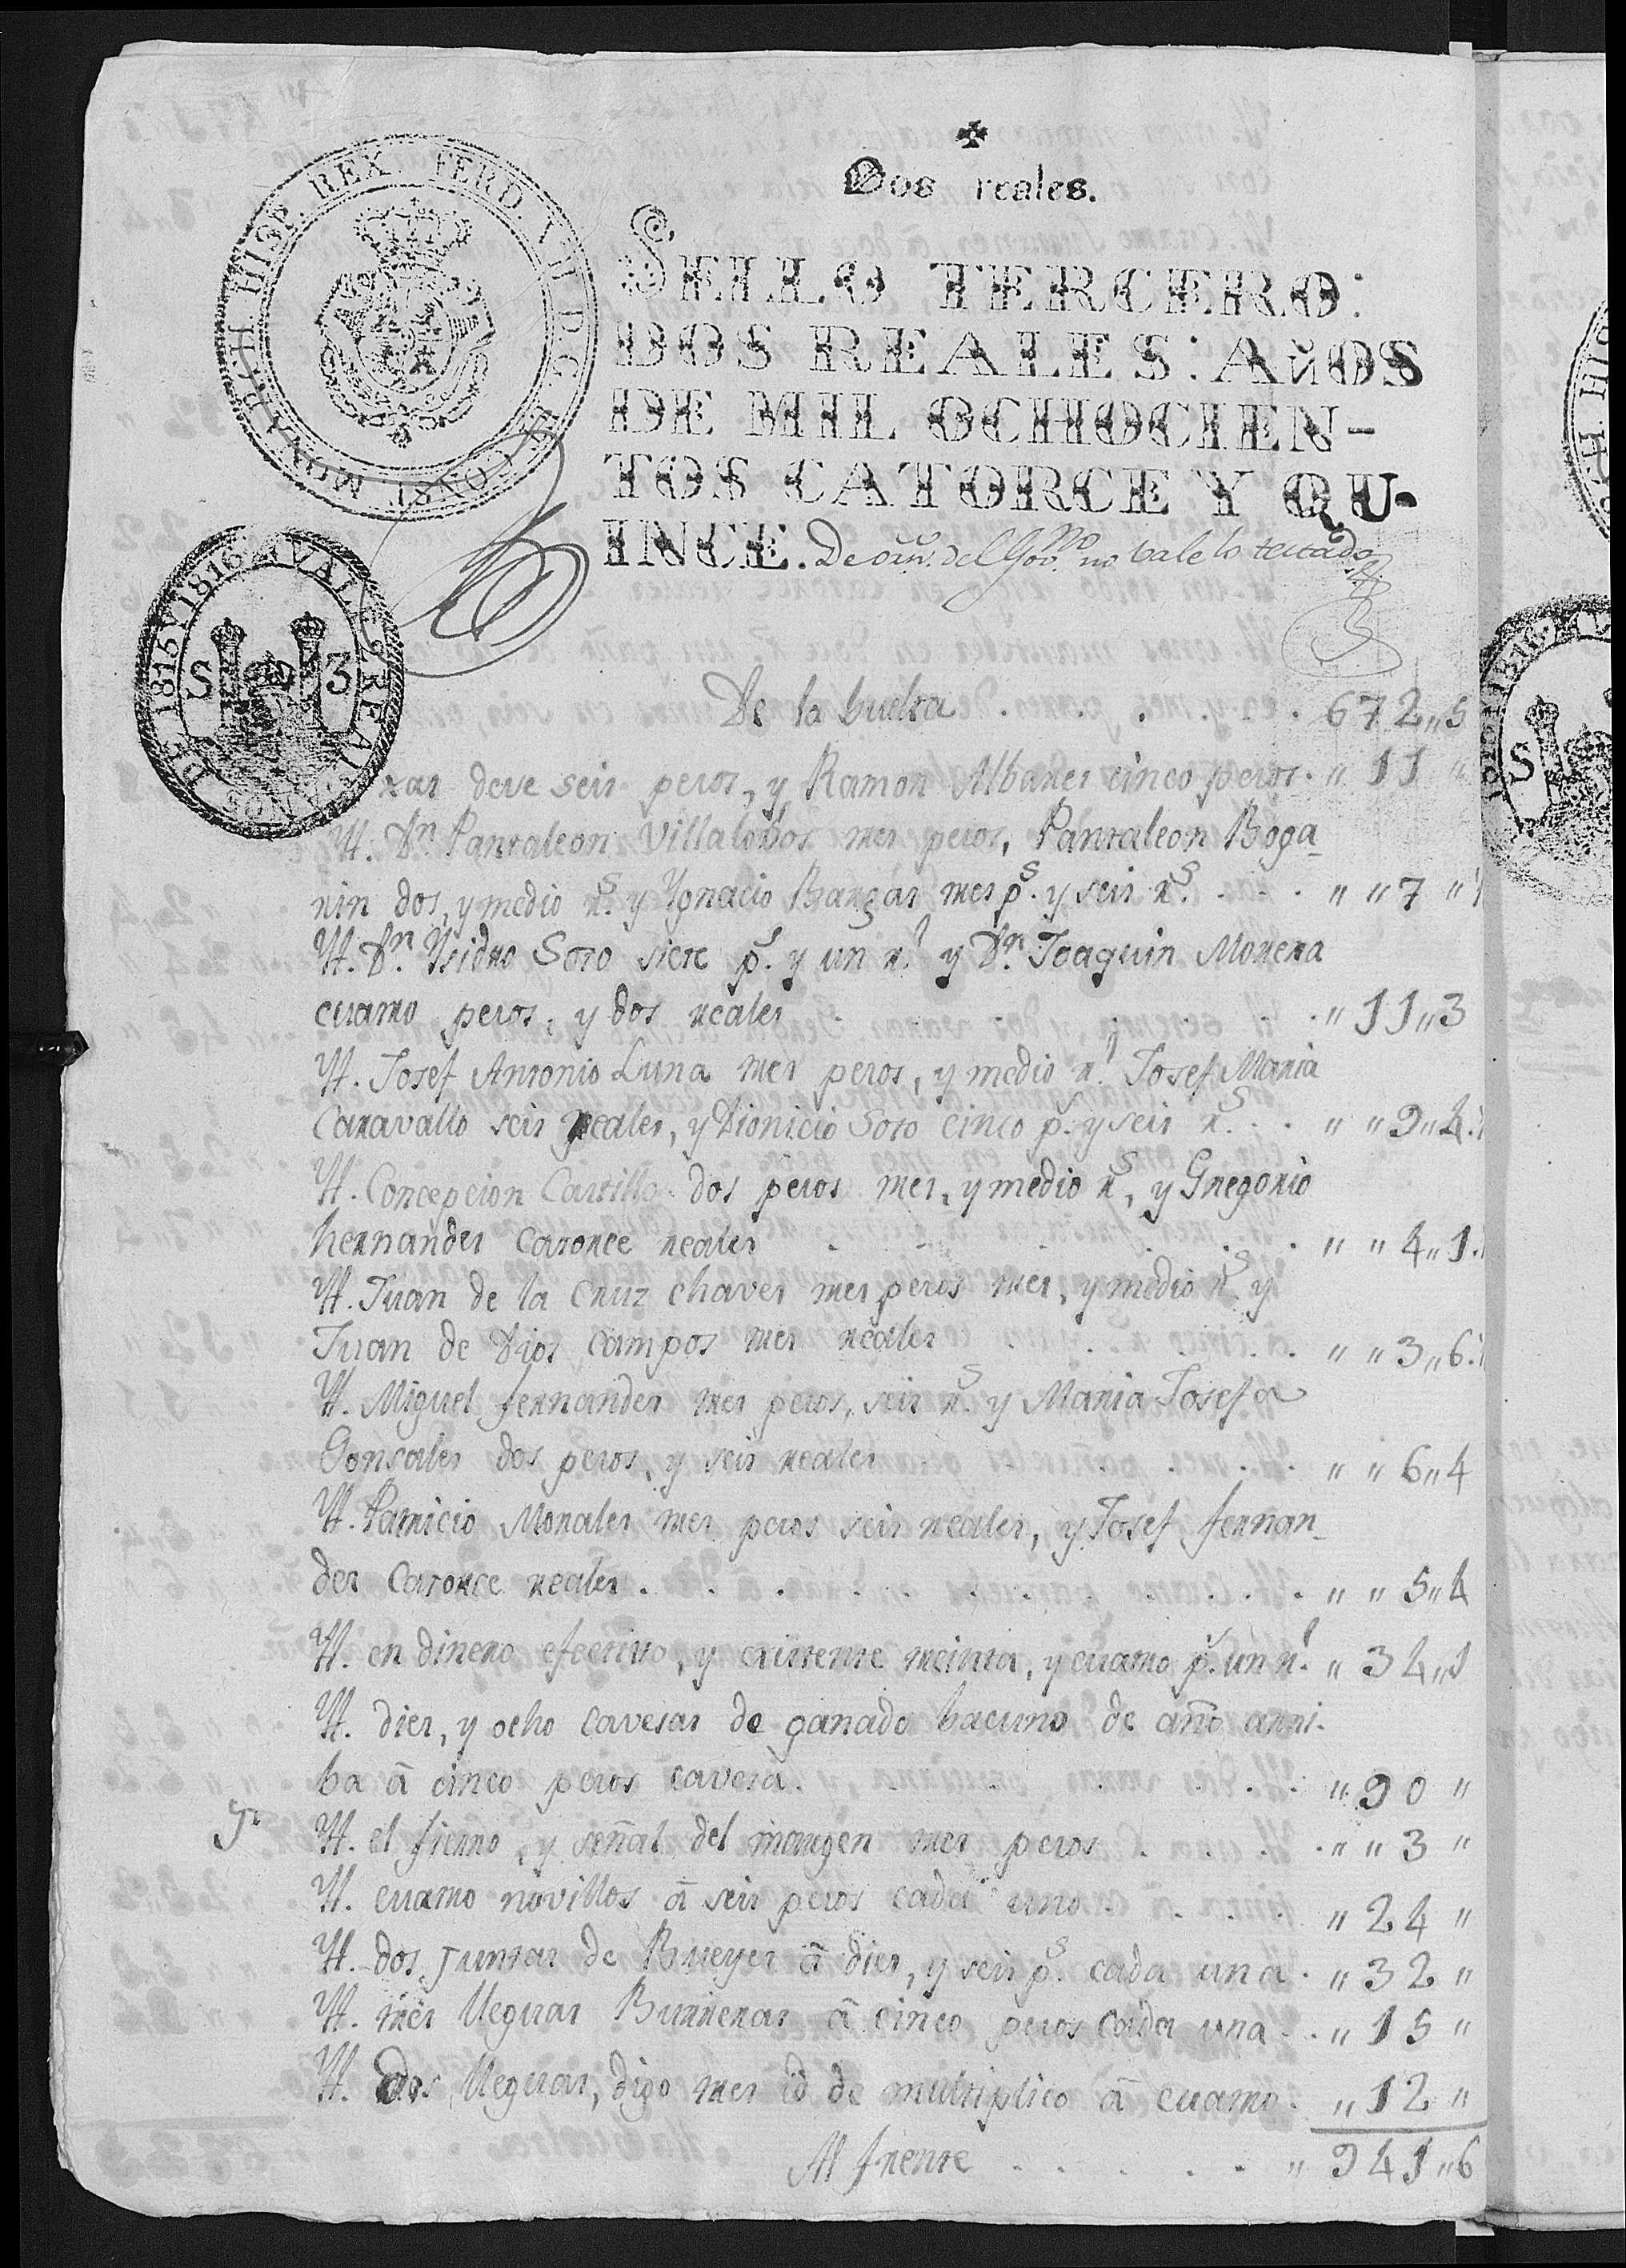 Dos reales.
FERD. VII. D. G. ET CONST. MONARCH. HISP. REX.
SELLO TERCERO:
DOS REALES: AÑOS
DE MIL OCHOCIEN-
TOS CATORCE Y QU-
INCE. De orn. del Govno. no bale lo testado
S 3
DE 1815 Y 1816
De la buelta . . . . . 672,,5
xas deve seis pesos, y Ramon Albanes cinco pesos. ,, 11 ,,
Yt. Dn. Pantaleon Villalobos tres pesos, Pantaleon Boga-
rin dos, y medio rs. y Ygnacio Bargas tres ps. y seis rs. . . . ,, ,, 7 ,,
Yt. Dn. Ysidro Soto siete ps. y un rl. y Dn. Joaquin Morera
cuatro pesos, y dos reales . . . . . . ,, 11,,3
Yt. Josef Antonio Luna tres pesos, y medio rl. Josef Maria
Caravallo seis reales, y Dionicio Soto cinco ps. y seis rs. . . ,, ,, 9,,4.
Yt. Concepcion Carrillo dos pesos tres, y medio rs, y Gregorio
hernandes catorce reales . . . . . ,, ,, 4,,1.
Yt. Juan de la Cruz chaves tres pesos tres, y medio rs. y
Juan de Dios Campos tres reales . . . . . ,, ,, 3,,6.
Yt. Miguel fernandes tres pesos, seis rs. y Maria Josefa
Gonsales dos pesos, y seis reales . . . . . ,, ,, 6,,4
Yt. Patricio Morales tres pesos seis reales, y Josef fernan-
des catorce reales . . . . . . . . . ,, ,, 5,,4
Yt. en dinero efectivo, y existente treinta, y cuatro ps. un rl. ,, 34,,1
Yt. dies, y ocho cavesas de ganado bacuno de año arri-
ba á cinco pesos cavesa . . . . . . ,, 90 ,,
Yt. el fierro, y señal del margen tres pesos . . . . ,, ,, 3 ,,
Yt. cuatro novillos á seis pesos cada uno . . . . ,, 24 ,,
Yt. dos Juntas de Bueyes á dies, y seis ps. cada una . ,, 32 ,,
Yt. tres Yeguas Burreras á cinco pesos cada una . . ,, 15 ,,
Yt. dos Yeguas, digo tres id de multiplico á cuatro . ,, 12 ,,
Al frente . . . . . ,, 941,,6